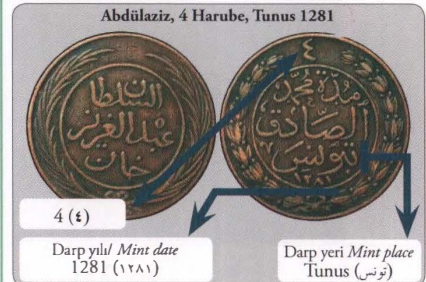 Abdülaziz, 4 Harube, Tunus 1281
السلطان
عبد العزيز
خان
٤
مدة محمد
الصادق
بتونس
١٢٨١
4 (٤)
Darp yılı/ Mint date
1281 (١٢٨١)
Darp yeri Mint place
Tunus (تونس)